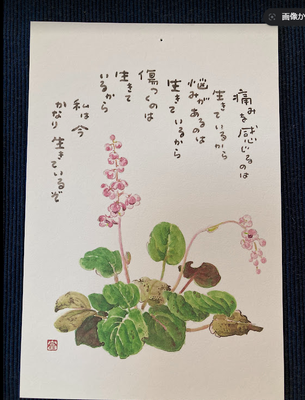 痛みを感じるのは
生きているから
悩みがあるのは
生きているから
傷つくのは
生きて
いるから
私は今
かなり生きているぞ
画像か